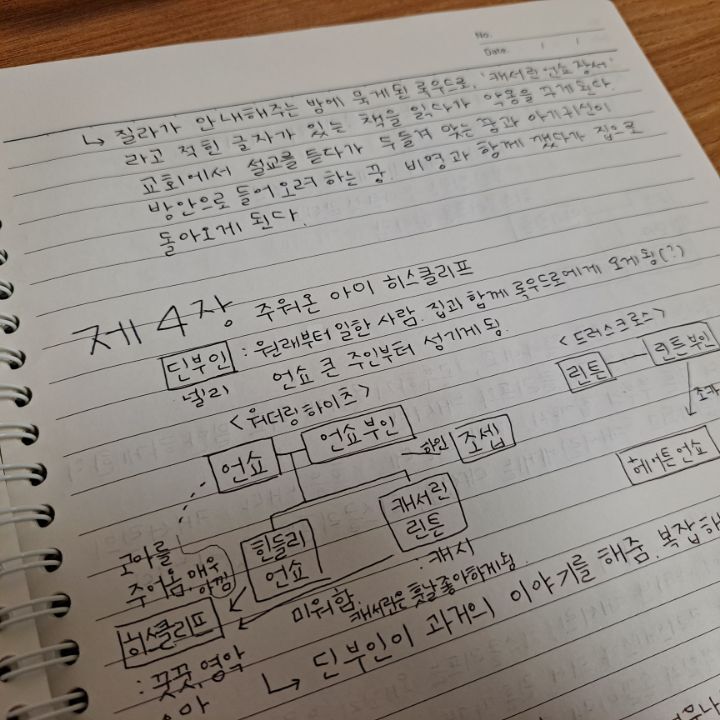 No.
Date. / /
↳ 질라가 안내해주는 방에 묵게된 록우드로, '캐서린 언쇼 장서'
라고 적힌 글자가 있는 책을 읽다가 악몽을 꾸게된다.
교회에서 설교를 듣다가 두들겨 맞는 꿈과 아기귀신이
방안으로 들어오려 하는 꿈. 비명과 함께 깼다가 집으로
돌아오게 된다.
제 4장 주워온 아이 히스클리프
딘부인 : 원래부터 일한 사람. 집과 함께 록우드로에게 오게됨(?)
넬리 언쇼 큰 주인부터 섬기게 됨.
<드러스크로스>
린튼 린튼부인
<워더링하이츠>
언쇼 언쇼부인 하인 조셉
헤어튼언쇼
힌들리 언쇼
캐서린 린튼
: 캐시
고아를
주어옴, 매우 아낌
미워함
캐서린은 훗날 좋아하게됨.
히스클리프
: 꿋꿋, 영악
↳ 딘부인이 과거의 이야기를 해줌. 복잡해